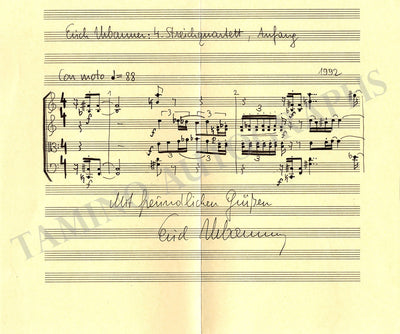 Erich Urbanner: 4. Streichquartett, Anfang
Con moto ♩= 88 1992
1 2
3 3 3 3
3
Mit freundlichen Grüßen
Erich Urbanner
TAMINO AUTOGRAPHS